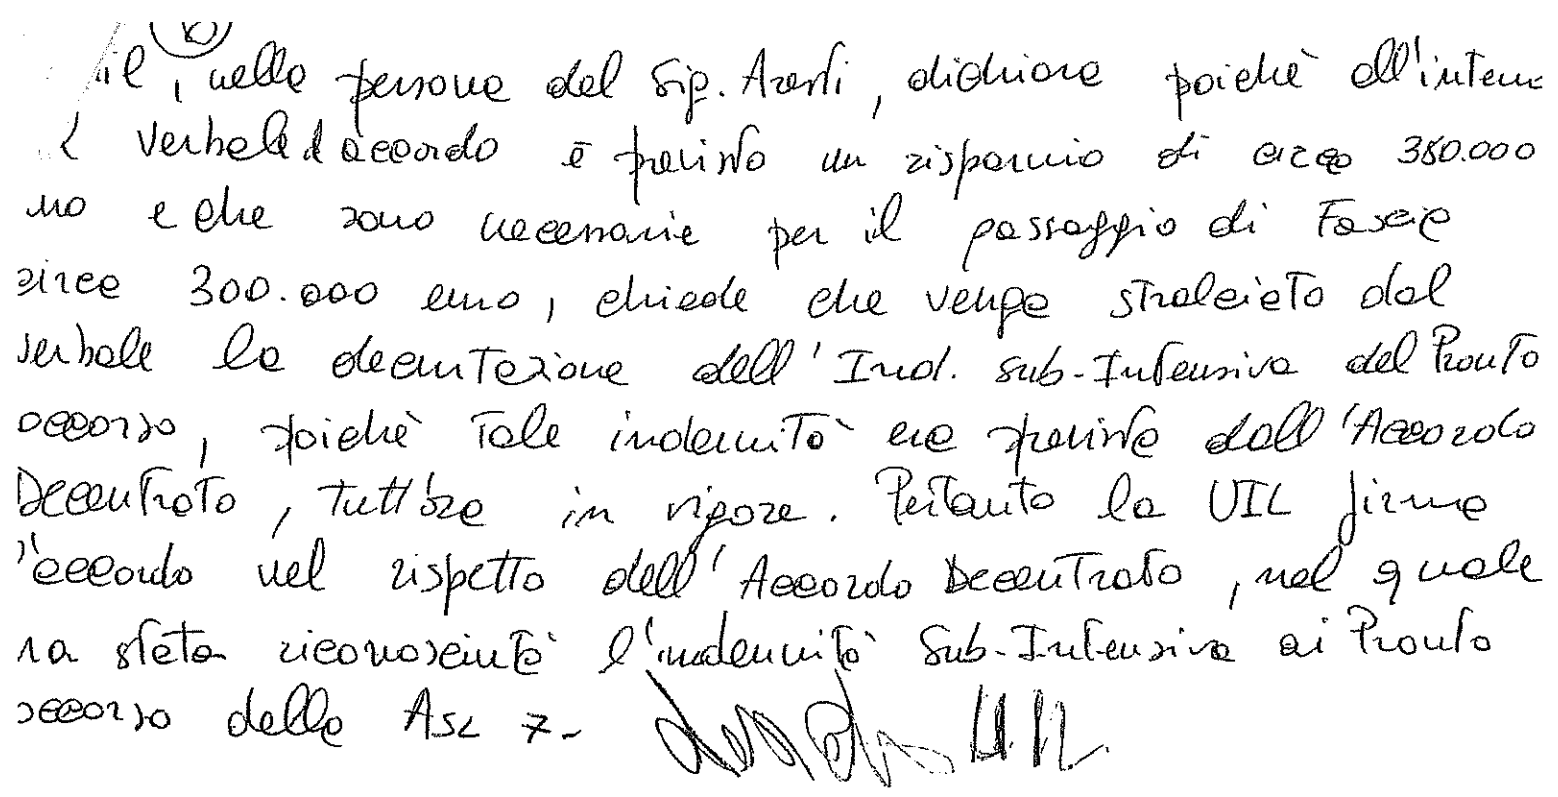 il, nella persona del Sig. Aresti, dichiara poichè all'intern
verbale d'accordo è previsto un risparmio di circa 380.000
uro e che sono necessarie per il passaggio di Fascia
circa 300.000 euro, chiede che venga stralciato dal
verbale la decurtazione dell'Ind. Sub-Intensiva del Pronto
occorso, poichè tale indennità era prevista dall'Accordo
Decentrato, tutt'ora in vigore. Pertanto la UIL firma
l'accordo nel rispetto dell'Accordo Decentrato, nel quale
ra stata riconosciuta l'indennità Sub-Intensiva ai Pronto
occorso della ASL 7-
UIL